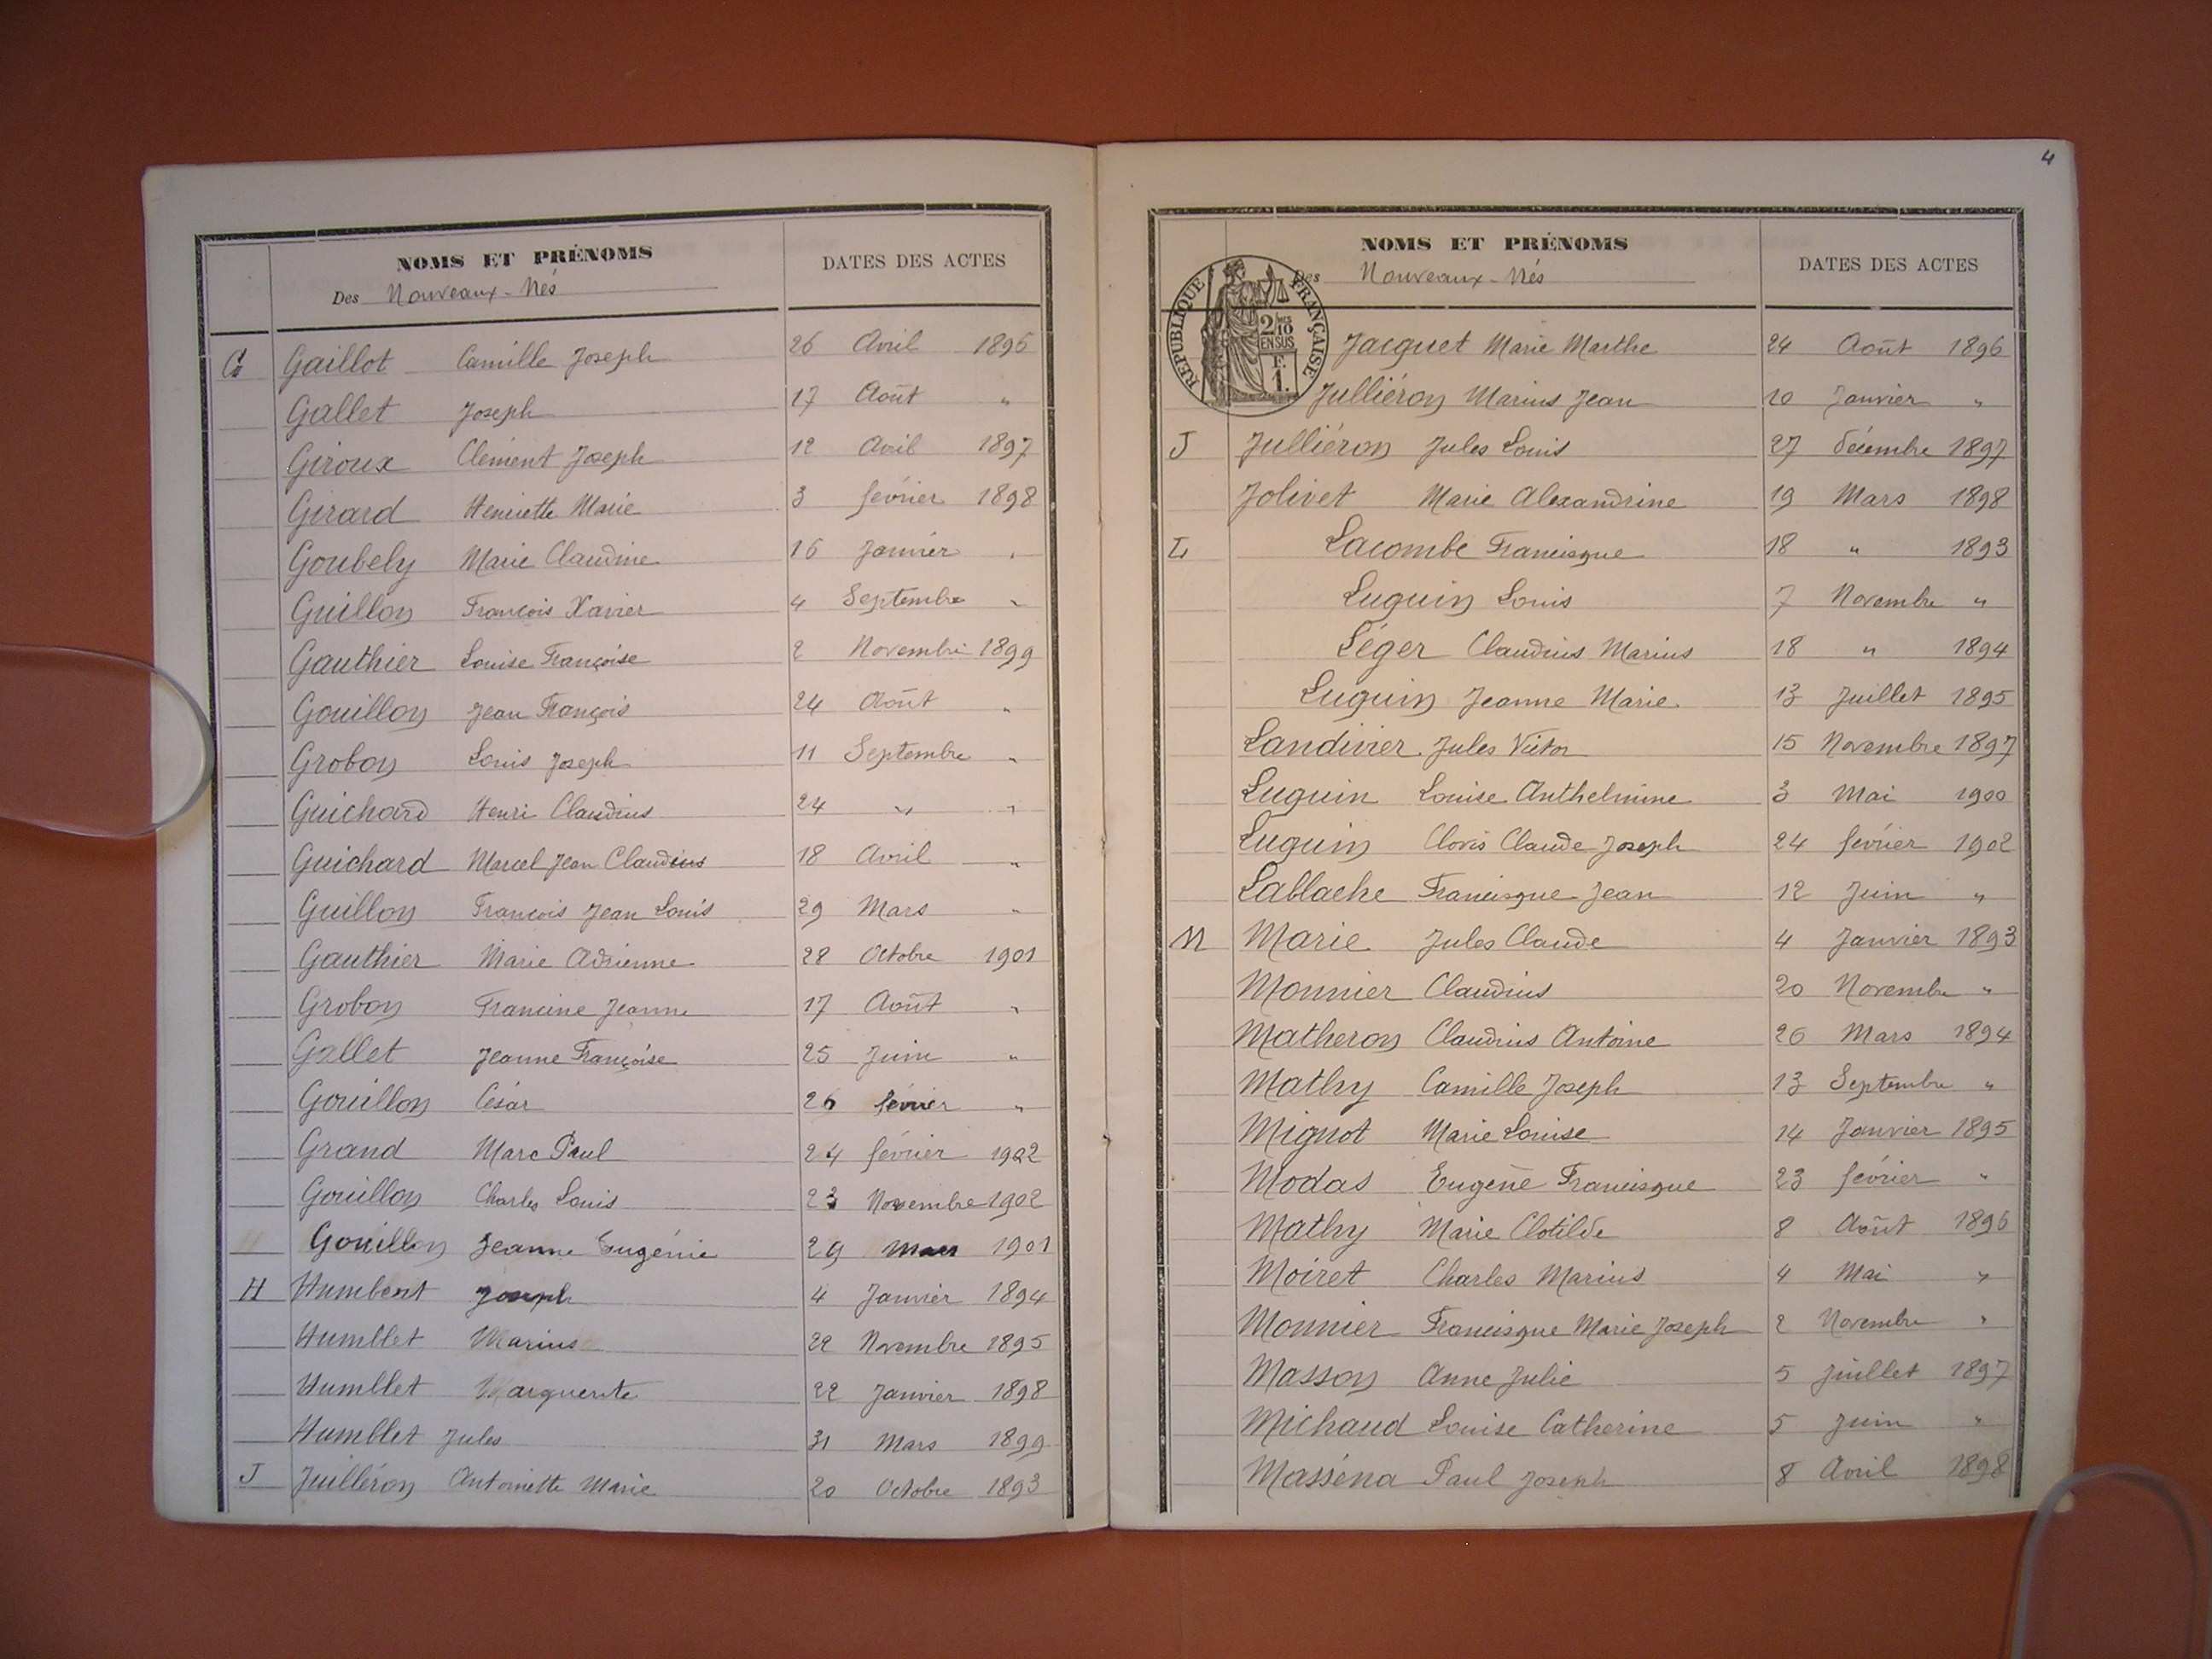 NOMS ET PRÉNOMS DATES DES ACTES
Des Nouveaux-Nés
G Gaillot Camille Joseph 26 Avril 1896
Gallet Joseph 17 Août "
Giroux Clément Joseph 12 Avril 1897
Girard Henriette Marie 3 février 1898
Goubely Marie Claudine 16 Janvier "
Guillon François Xavier 4 Septembre "
Gauthier Louise Françoise 2 Novembre 1899
Gouillon Jean François 24 Août "
Grobon Louis Joseph 11 Septembre "
Guichard Henri Claudius 24 " "
Guichard Marcel Jean Claudius 18 Avril "
Guillon François Jean Louis 29 Mars "
Gauthier Marie Adrienne 28 Octobre 1901
Grobon Francine Jeanne 17 Août "
Gallet Jeanne Françoise 25 Juin "
Gouillon César 26 février "
Grand Marc Paul 24 février 1902
Gouillon Charles Louis 23 Novembre 1902
Gouillon Jeanne Eugénie 29 Mars 1901
H Humbert Joseph 4 Janvier 1894
Humblet Marius 22 Novembre 1895
Humblet Marguerite 22 Janvier 1898
Humblet Jules 31 Mars 1899
J Juilléron Antoinette Marie 20 Octobre 1893
4
NOMS ET PRÉNOMS DATES DES ACTES
Des Nouveaux-Nés
RÉPUBLIQUE FRANÇAISE
2/10
EN SUS
F.
1.
Jacquet Marie Marthe 24 Août 1896
Julliéron Marius Jean 10 Janvier "
J Julliéron Jules Louis 27 décembre 1897
Jolivet Marie Alexandrine 19 Mars 1898
L Lacombe Francisque 18 " 1893
Luguin Louis 7 Novembre "
Léger Claudius Marius 18 " 1894
Luguin Jeanne Marie 13 Juillet 1895
Landivier Jules Victor 15 Novembre 1897
Luguin Louise Anthelmine 3 Mai 1900
Luguin Clovis Claude Joseph 24 février 1902
Lablache Francisque Jean 12 Juin "
M Marie Jules Claude 4 Janvier 1893
Monnier Claudius 20 Novembre "
Matheron Claudius Antoine 26 Mars 1894
Mathy Camille Joseph 13 Septembre "
Mignot Marie Louise 14 Janvier 1895
Modas Eugène Francisque 23 février "
Mathy Marie Clotilde 8 Août 1896
Moiret Charles Marius 4 Mai "
Monnier Francisque Marie Joseph 2 Novembre "
Masson Anne Julie 5 Juillet 1897
Michaud Louise Catherine 5 Juin "
Masséna Paul Joseph 8 Avril 1898